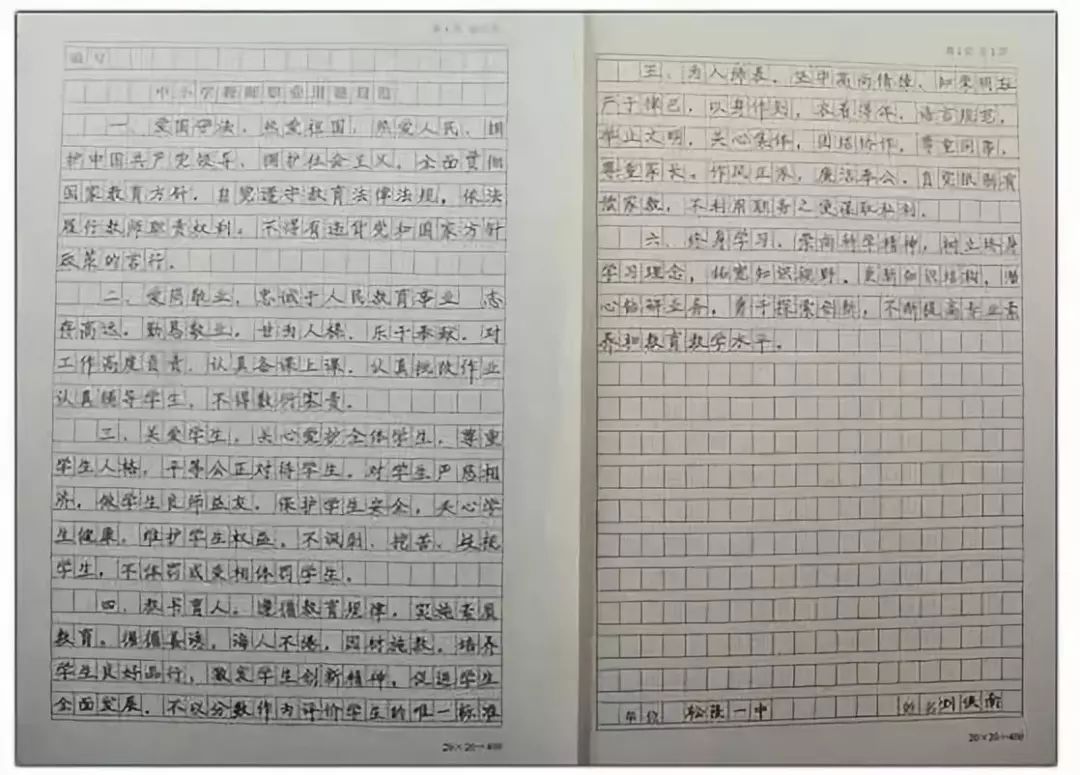 编号
中小学教师职业道德规范
一、爱国守法。热爱祖国，热爱人民，拥
护中国共产党领导，拥护社会主义。全面贯彻
国家教育方针，自觉遵守教育法律法规，依法
履行教师职责权利。不得有违背党和国家方针
政策的言行。
二、爱岗敬业。忠诚于人民教育事业 志
存高远，勤恳敬业，甘为人梯，乐于奉献。对
工作高度负责，认真备课上课，认真批改作业
认真辅导学生，不得敷衍塞责。
三、关爱学生。关心爱护全体学生，尊重
学生人格，平等公正对待学生。对学生严慈相
济，做学生良师益友。保护学生安全，关心学
生健康，维护学生权益。不讽刺、挖苦、歧视
学生，不体罚或变相体罚学生。
四、教书育人。遵循教育规律，实施素质
教育。循循善诱，诲人不倦，因材施教。培养
学生良好品行，激发学生创新精神，促进学生
全面发展。不以分数作为评价学生的唯一标准
20×20=400
第1页 共1页
三、为人师表。坚守高尚情操，知荣明耻
严于律己，以身作则。衣着得体，语言规范，
举止文明。关心集体，团结协作，尊重同事，
尊重家长。作风正派，廉洁奉公。自觉抵制有
偿家教，不利用职务之便谋取私利。
六、终身学习。崇尚科学精神，树立终身
学习理念，拓宽知识视野，更新知识结构。潜
心钻研业务，勇于探索创新，不断提高专业素
养和教育教学水平。
单位 松陵一中 姓名 刘
20×20=400